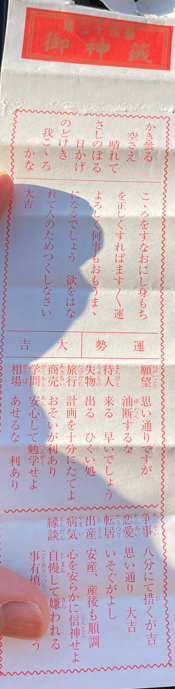 第三十四番
御神籤
かき曇る
空さえ
晴れて
さしのぼる
日かげ
のどけき
我こゝろ
かな
こゝろをすなおにし身もち
を正しくすればますく運
よろしく何事もおもうまゝ
になるでしょう 欲をはな
れて人のためつくしなさい
大吉
運勢 大吉
願望 思い通りですが
油断するな
待人 来る 早いでしょう
失物 出る ひくい処
旅行 計画を十分にたてよ
商売 おそいが利あり
学問 安心して勉学せよ
相場 あせるな 利あり
争事 八分にて措くが吉
恋愛 思い通り 大吉
転居 いそぐがよし
出産 安産、産後も順調
病気 心を安らかに信神せよ
縁談 自慢して嫌われる
事有